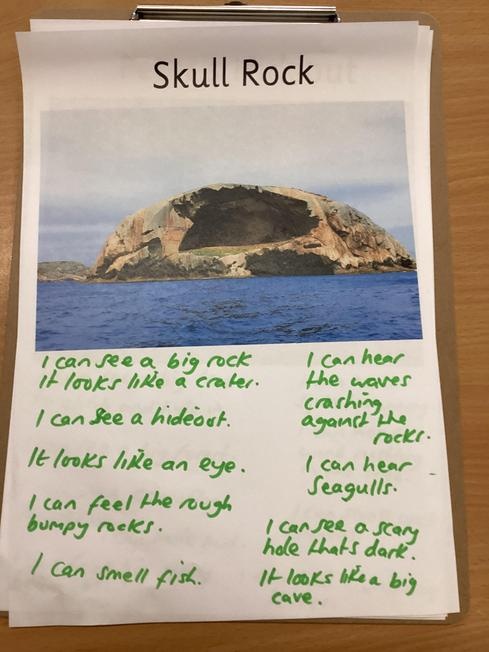 Skull Rock
I can see a big rock
it looks like a crater.
I can See a hideout.
It looks like an eye.
I can feel the rough
bumpy rocks.
I can smell fish.
I can hear
the waves
crashing
against the
rocks.
I can hear
Seagulls.
I can see a scary
hole thats dark.
It looks like a big
cave.